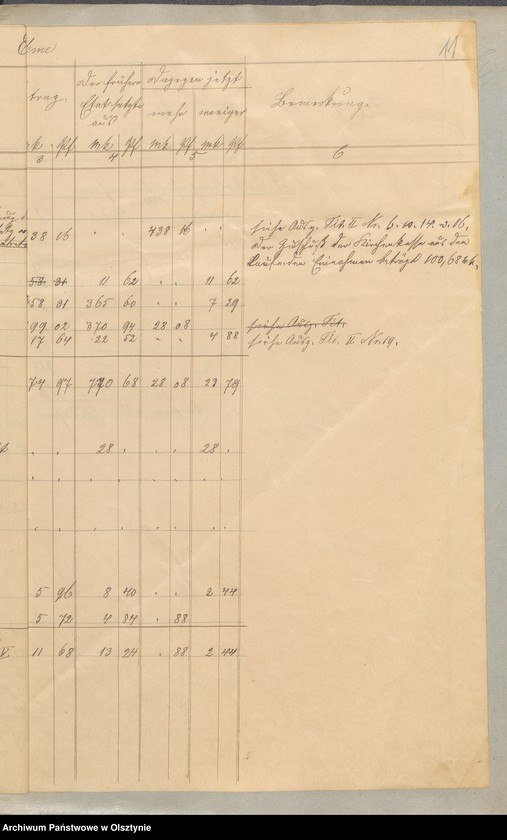 11
Der frühere Dagegen jetzt
trag. Etat setzte mehr weniger Bemerkung.
aus
k Pf Mk Pf Mk Pf Mk Pf
3 4 5 6
38 16 . . 438 16 . . siehe Ausg. Tit. II No. 6. 10. 14. u. 16.
Der Zuschuß der Kirchenkasse aus den
laufenden Einnahmen beträgt 100,68 Mk.
58 31 11 62 . . 11 62
58 31 365 60 . . 7 29
99 02 370 94 28 08 siehe Ausg. Tit.
17 64 22 52 . . 4 88 siehe Ausg. Tit. II No. 19.
74 97 770 68 28 08 23 79
. . 28 . 28 .
5 96 8 40 . . 2 44
5 72 4 84 . 88
11 68 13 24 . 88 2 44
Archiwum Państwowe w Olsztynie